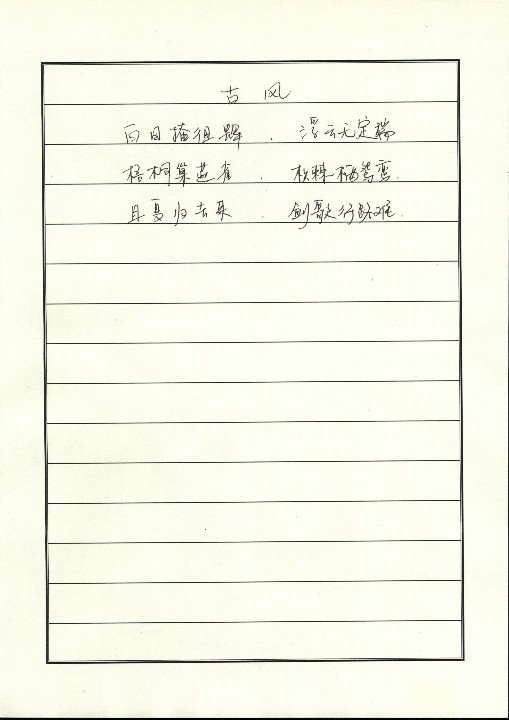 古风
白日掩徂晖，浮云无定端
梧桐巢燕雀，枳棘栖鸳鸾.
且复归去来，剑歌行路难.